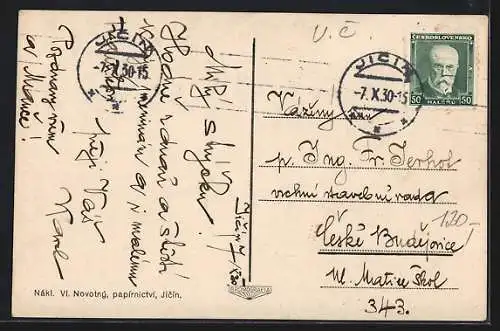 V.Č.
JIČÍN
-7.X.30-15
JIČÍN
-7.X.30-15
ČESKOSLOVENSKO
50 HALÉŘŮ 50
Milý strýčku!
Hodně zdraví a štěstí
a i malému
přeje Váš
Karel
Pozdravy
a Mařence!
Jičín 7/X 30
Vážený pan
p. Ing. Fr. Terhol
vrchní stavební rada
České Budějovice
ul. Matice Škol
343.
120-
Nákl. Vl. Novotný, papírnictví, Jičín.